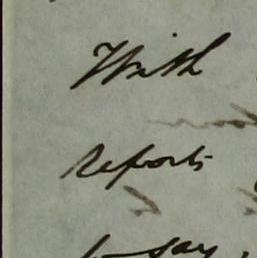 With
reports
to say,